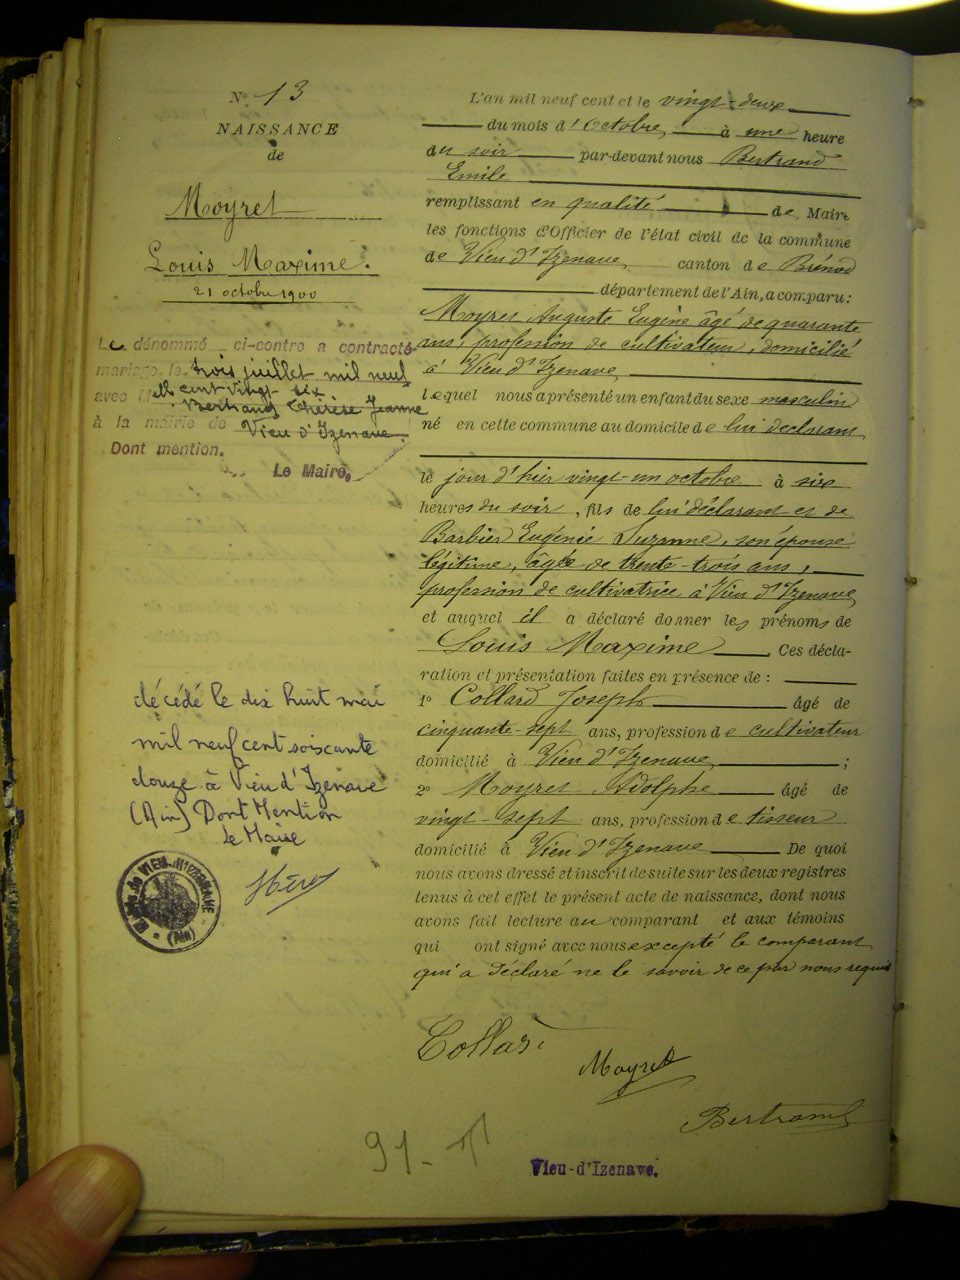 N° 13
NAISSANCE
de
Moyret
Louis Maxime.
21 octobre 1900
Le dénommé ci-contre a contracté
mariage le trois juillet mil neuf
cent vingt six
avec Mlle Bertrand Thérèse Jeanne
à la mairie de Vieu d'Izenave
Dont mention.
Le Maire,
décédé le dix huit mai
mil neuf cent soixante
douze à Vieu d'Izenave
(Ain) Dont Mention
Le Maire
(Ain)
L'an mil neuf cent et le vingt-deux
du mois d'Octobre, à une heure
du soir par-devant nous Bertrand
Emile
remplissant en qualité de Maire
les fonctions d'Officier de l'état civil de la commune
de Vieu d'Izenave canton de Brénod
département de l'Ain, a comparu:
Moyret Auguste Eugène âgé de quarante
ans, profession de cultivateur, domicilié
à Vieu d'Izenave
lequel nous a présenté un enfant du sexe masculin
né en cette commune au domicile de lui déclarant,
le jour d'hier vingt-un octobre à six
heures du soir, fils de lui déclarant et de
Barbier Eugénie Suzanne, son épouse
légitime, âgée de trente-trois ans,
profession de cultivatrice à Vieu d'Izenave
et auquel il a déclaré donner les prénoms de
Louis Maxime Ces décla-
ration et présentation faites en présence de :
1° Collard Joseph âgé de
cinquante-sept ans, profession de cultivateur
domicilié à Vieu d'Izenave ;
2° Moyret Adolphe âgé de
vingt-sept ans, profession de tisseur
domicilié à Vieu d'Izenave De quoi
nous avons dressé et inscrit de suite sur les deux registres
tenus à cet effet le présent acte de naissance, dont nous
avons fait lecture au comparant et aux témoins
qui ont signé avec nous excepté le comparant
qui a déclaré ne le savoir de ce par nous requis
Collard
Moyret
Bertrand
91-
Vieu-d'Izenave.